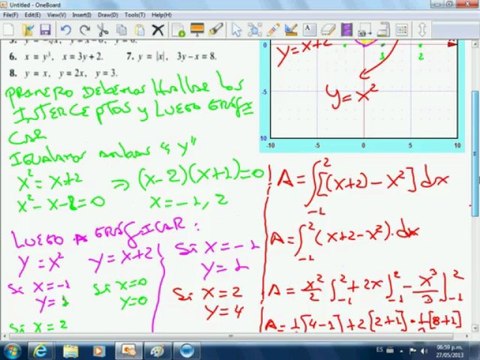 Untitled - OneBoard
File(F) Edit(E) View(V) Insert(I) Draw(D)
6. x = y³, x = 3y + 2. 7. y = |x|, 3y − x = 8.
8. y = x, y = 2x, y = 3.
PRIMERO DEBEMOS HALLAR LOS
INTERCEPTOS Y LUEGO GRÁFI
CAR
IGUALAMOS AMBAS "Y"
x² = x+2 ⇒ (x−2)(x+1)=0
x² − x − 2 = 0 x = −1, 2
LUEGO A GRÁFICAR:
y = x² y = x+2
Si x = −1 Si x = 0
y = 1 y = 0
Si x = 2
Si x = −1
y = 1
Si x = 2
y = 4
y = x+2
1 2
y = x²
-5
-10
-10 -5 0 5 10
A = ∫₋₁² [(x+2) − x²] dx
A = ∫₋₁² (x+2−x²) dx
A = x²/2 ]₋₁² + 2x ]₋₁² − x³/3 ]₋₁²
A = 1/2[4−1] + 2[2+1] - 1/3[8+1]
ES
06:59 p.m.
27/05/2013